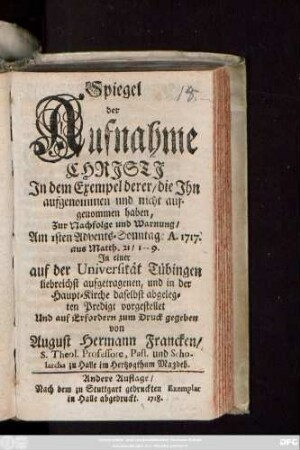 18.
Spiegel
der
Aufnahme
CHRISTI
In dem Exempel derer/ die Ihn
aufgenommen und nicht auf-
genommen haben,
Zur Nachfolge und Warnung/
Am 1sten Advents-Sonntag: A. 1717.
aus Matth. 21/ 1--9.
In einer
auf der Universität Tübingen
liebreichst aufgetragenen, und in der
Haupt-Kirche daselbst abgeleg-
ten Predigt vorgestellet
Und auf Erfordern zum Druck gegeben
von
August Hermann Francken/
S. Theol. Professore, Past. und Scho-
larcha zu Halle im Hertzogthum Magdeb.
Andere Auflage/
Nach dem zu Stuttgart gedruckten Exemplar
in Halle abgedruckt. 1718.